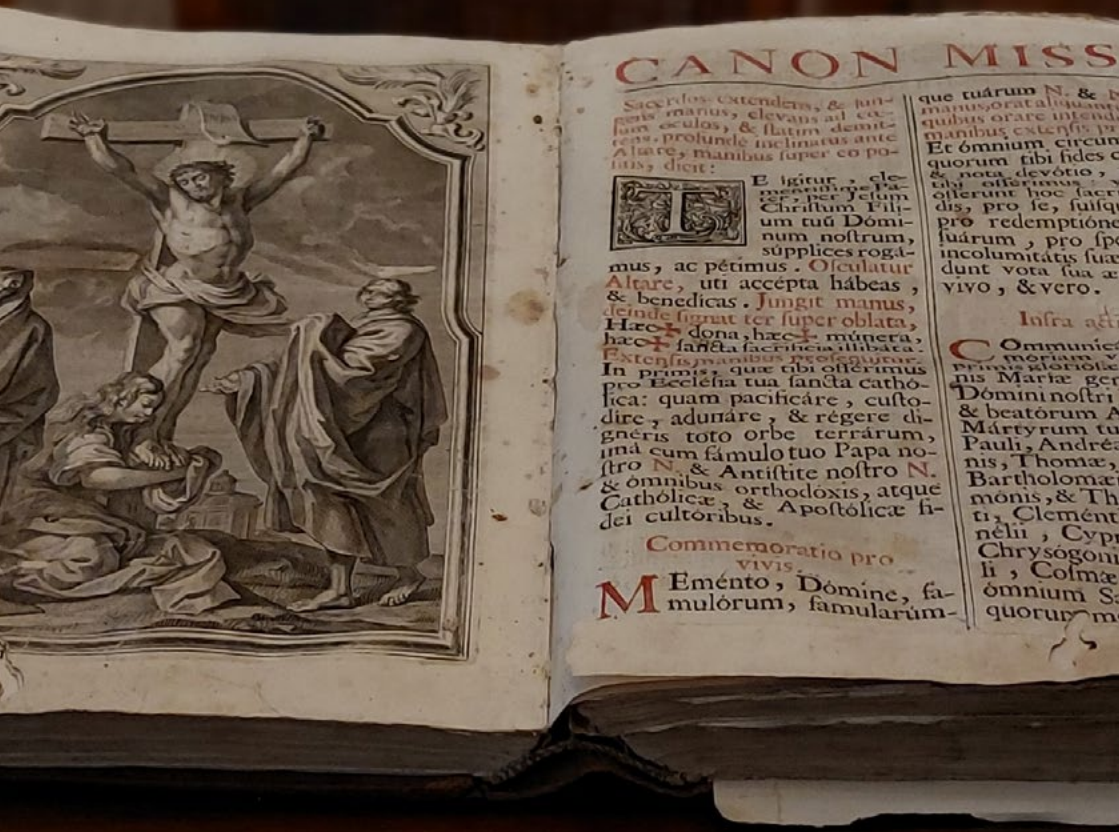 CANON MISS
Sacerdos extendens, & jun-
gens manus, elevans ad cœ-
lum oculos, & ſtatim demit-
tens, profunde inclinatus ante
Altare, manibus ſuper eo po-
ſitis, dicit:
TE igitur, cle-
mentiſſime Pa-
ter, per Jeſum
Chriſtum Fili-
um tuū Dómi-
num noſtrum,
súpplices rogá-
mus, ac pétimus. Oſculatur
Altare, uti accépta hábeas,
& benedícas. Jungit manus,
deinde ſignat ter ſuper oblata,
Hæc ✠ dona, hæc ✠ múnera,
hæc ✠ ſancta ſacrifícia illibáta.
Extenſis manibus proſequitur.
In primis, quæ tibi offérimus
pro Eccléſia tua ſancta cathó-
lica: quam pacificáre, cuſto-
díre, adunáre, & régere di-
gnéris toto orbe terrárum,
unà cum fámulo tuo Papa no-
ſtro N. & Antíſtite noſtro N.
& ómnibus orthodóxis, atque
Cathólicæ, & Apoſtólicæ fí-
dei cultóribus.
Commemoratio pro
vivis.
MEménto, Dómine, fa-
mulórum, famularúm-
que tuárum N. & N
manus, orat aliquant
quibus orare intend
manibus extenſis p
Et ómnium circum
quorum tibi fides c
& nota devótio,
tibi offérimus
ófferunt hoc ſacri
dis, pro ſe, ſuíſqu
pro redemptióne
ſuárum, pro ſpe
incolumitátis ſuæ
dunt vota ſua æ
vivo, & vero.
Infra a
COmmunicá
móriam
primis glorióſæ
nis Maríæ ge
Dómini noſtri
& beatórum A
Mártyrum tu
Pauli, Andréæ
nis, Thomæ,
Bartholomæ
mónis, & Th
ti, Clemént
nélii, Cypr
Chryſógoni
li, Coſmæ
ómnium S
quorum m